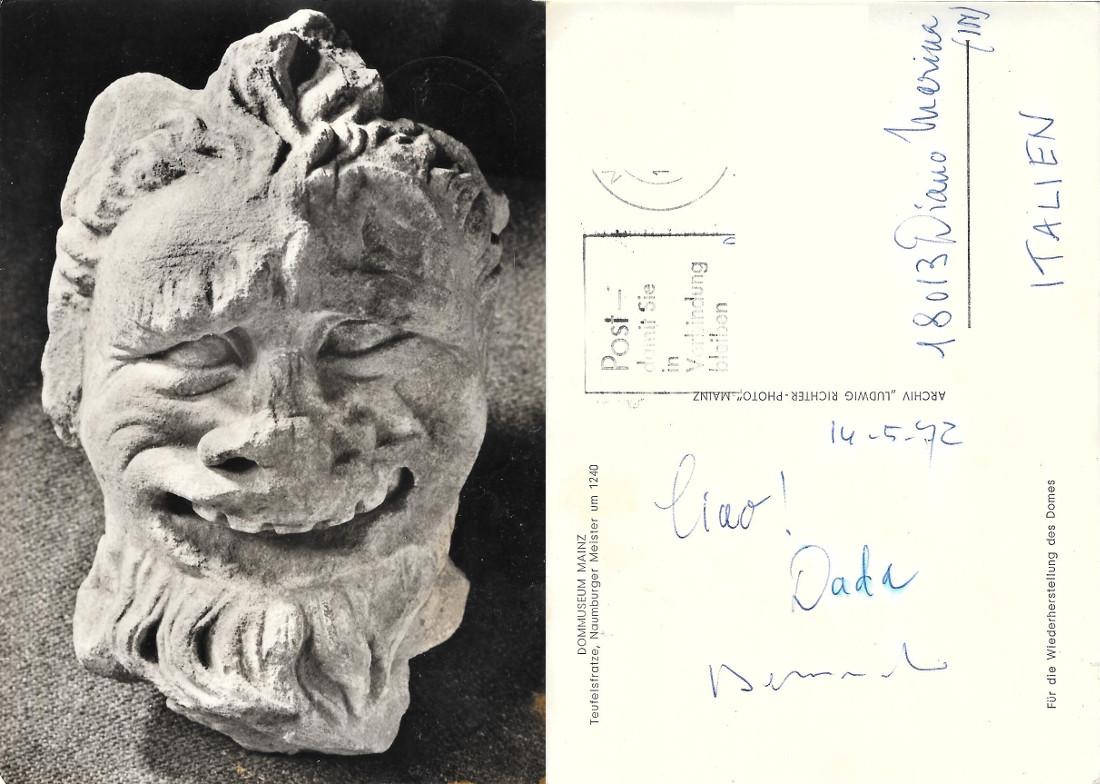 DOMMUSEUM MAINZ
Teufelsfratze, Naumburger Meister um 1240
Ciao!
Dada
14-5-72
Post –
damit Sie
in
Verbindung
bleiben
ARCHIV „LUDWIG RICHTER-PHOTO“-MAINZ
18013 Diano Marina
(IM)
ITALIEN
Für die Wiederherstellung des Domes